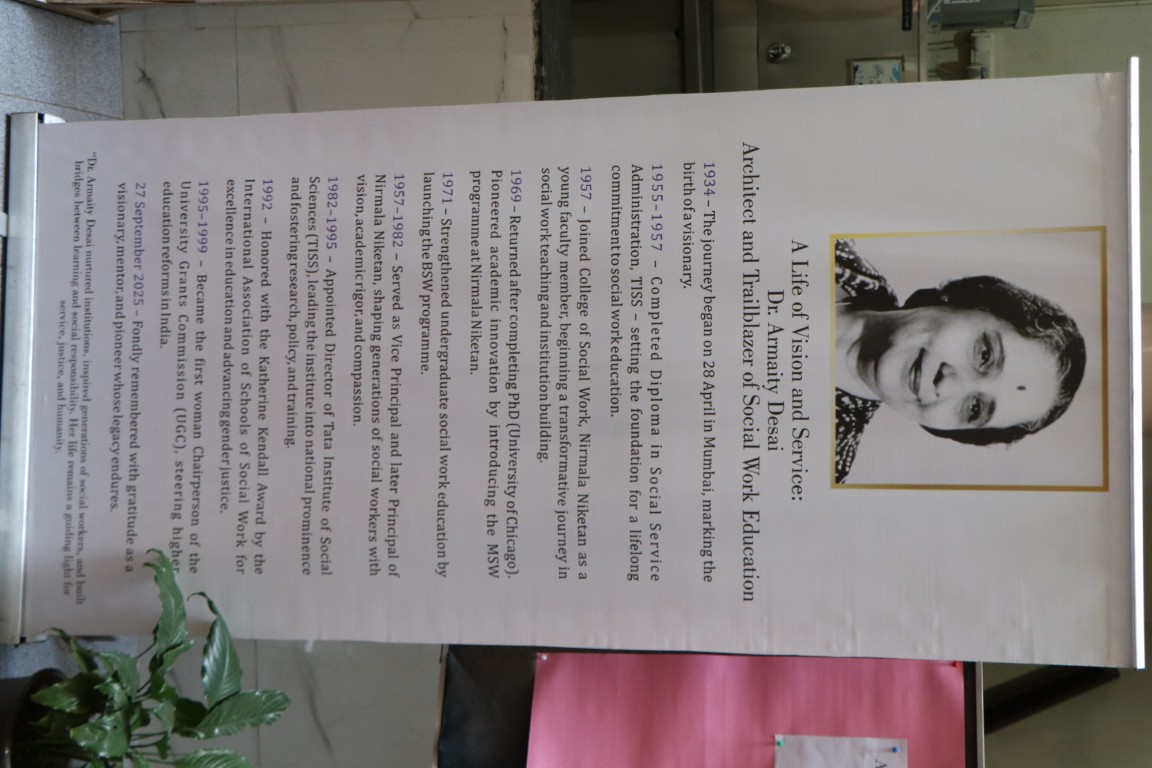 A Life of Vision and Service:
Dr. Armaity Desai
Architect and Trailblazer of Social Work Education
1934 – The journey began on 28 April in Mumbai, marking the
birth of a visionary.
1955–1957 – Completed Diploma in Social Service
Administration, TISS – setting the foundation for a lifelong
commitment to social work education.
1957 – Joined College of Social Work, Nirmala Niketan as a
young faculty member, beginning a transformative journey in
social work teaching and institution building.
1969 – Returned after completing PhD (University of Chicago).
Pioneered academic innovation by introducing the MSW
programme at Nirmala Niketan.
1971 – Strengthened undergraduate social work education by
launching the BSW programme.
1957–1982 – Served as Vice Principal and later Principal of
Nirmala Niketan, shaping generations of social workers with
vision, academic rigor, and compassion.
1982–1995 – Appointed Director of Tata Institute of Social
Sciences (TISS), leading the institute into national prominence
and fostering research, policy, and training.
1992 – Honored with the Katherine Kendall Award by the
International Association of Schools of Social Work for
excellence in education and advancing gender justice.
1995–1999 – Became the first woman Chairperson of the
University Grants Commission (UGC), steering higher
education reforms in India.
27 September 2025 – Fondly remembered with gratitude as a
visionary, mentor, and pioneer whose legacy endures.
"Dr. Armaity Desai nurtured institutions, inspired generations of social workers, and built
bridges between learning and social responsibility. Her life remains a guiding light for
service, justice, and humanity.